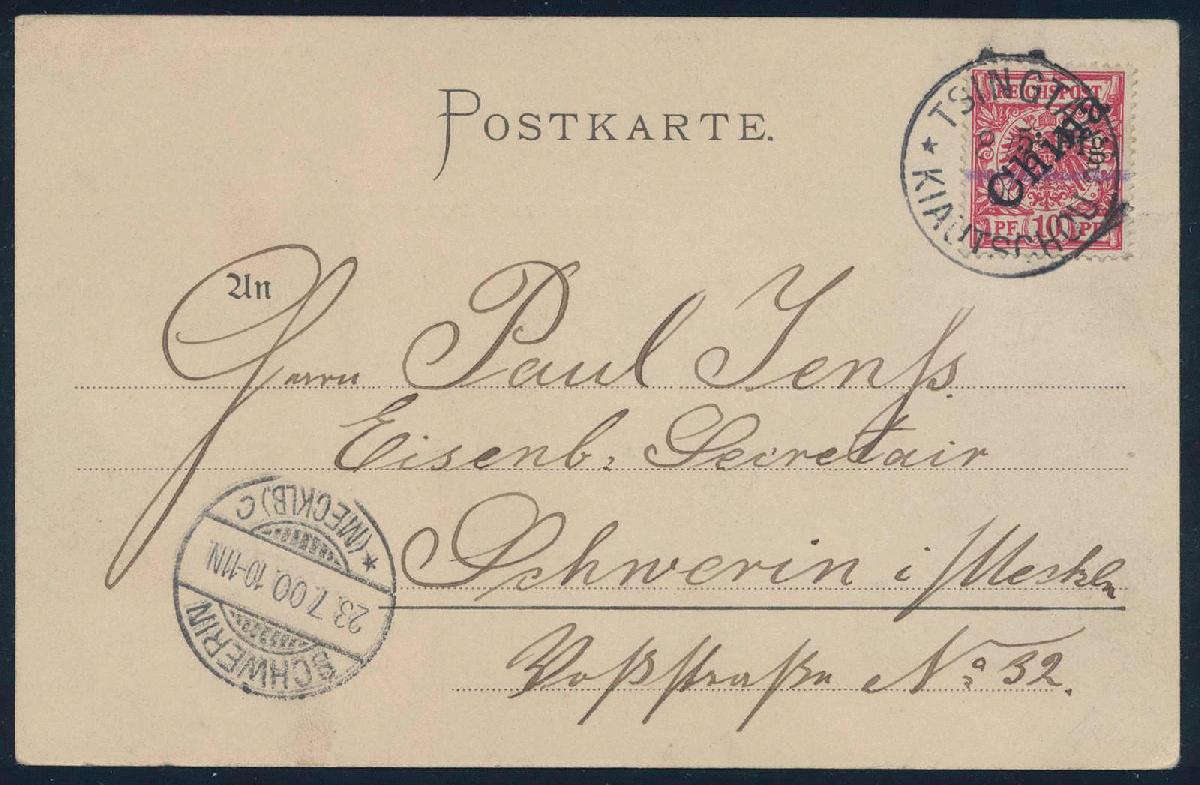 POSTKARTE.
REICHSPOST
China
PF 10 PF
TSINGTAU
* KIAUTSCHOU
An
Herrn Paul Jenss.
Eisenb. Secretair
Schwerin i/Meckln
Voßstraße No 32.
SCHWERIN
23.7.00. 10-11N.
* (MECKLB) C